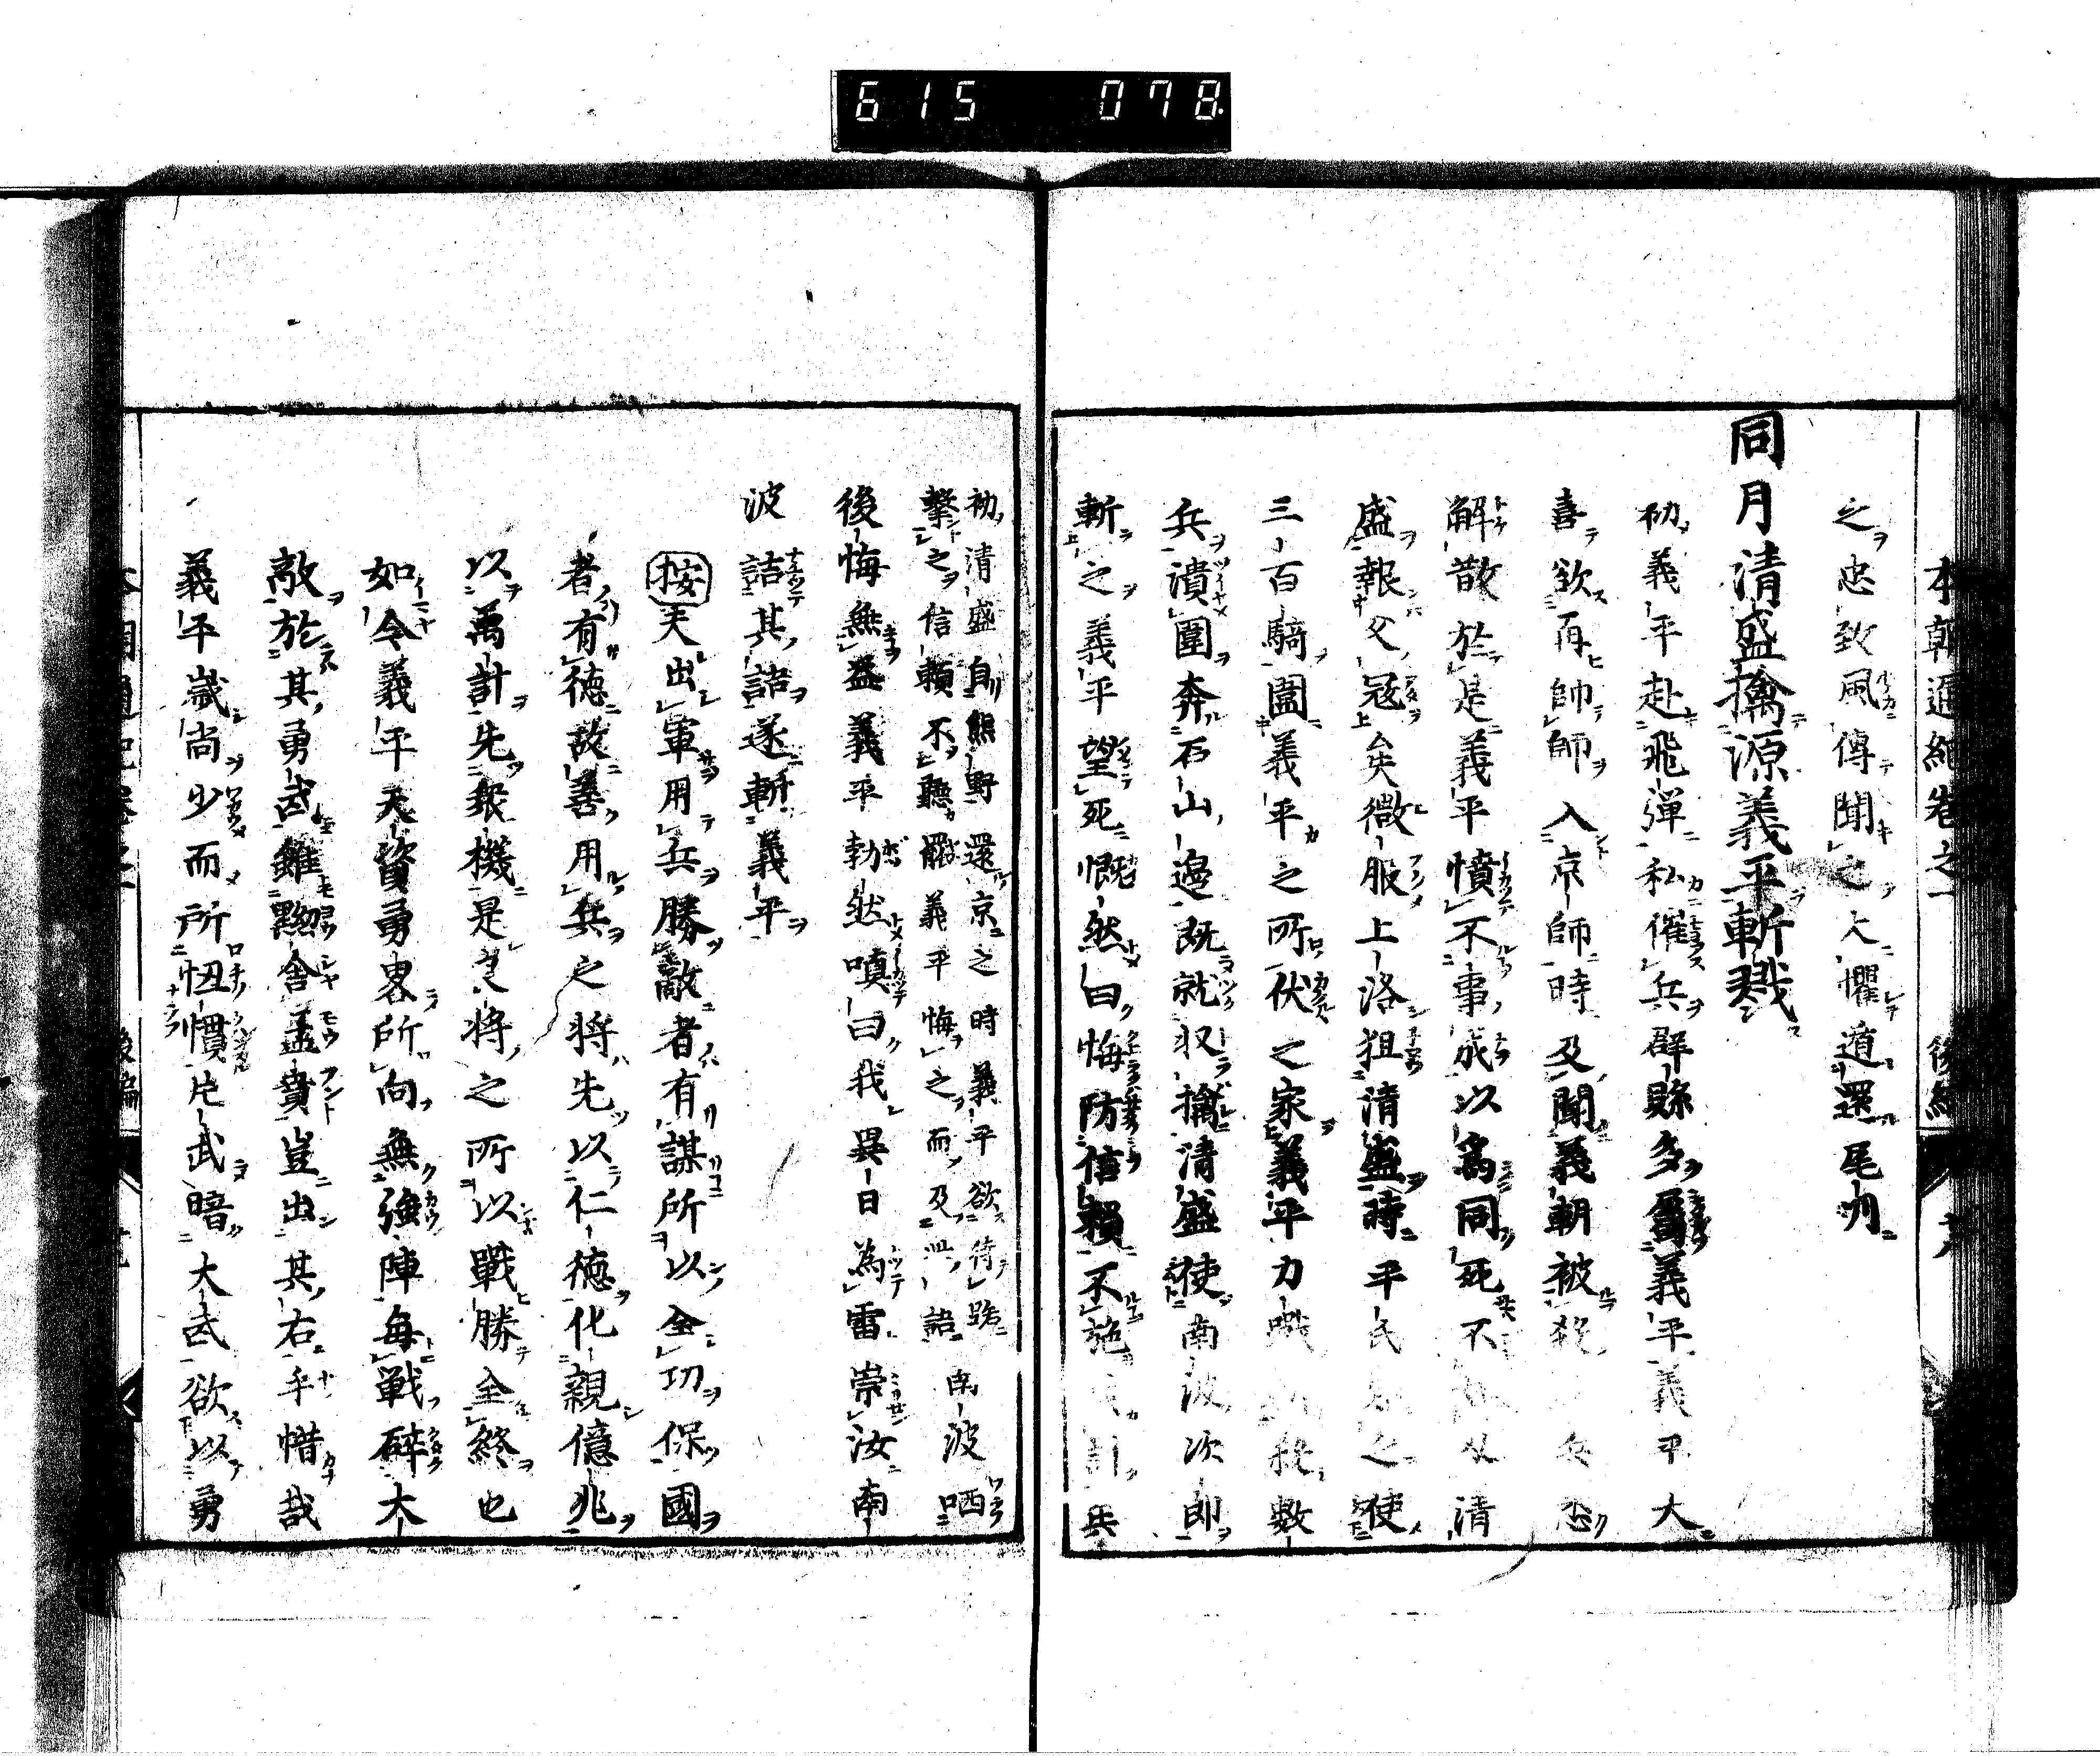 615 078
本朝通紀卷之一 後編
之忠致風傳聞之大懼遁還尾州
同月清盛擒源義平斬戮
初義平赴飛彈私催兵群縣多屬義平義平大
喜欲再帥師入京師時及聞義朝被殺 兵悉
解散於是義平憤不事成以為同死不 清
盛報父冦矣微服上洛狙清盛時平氏 之使
三百騎圍義平之所伏之家義平力戰 數
兵潰圍奔石山邊既就収擒清盛使南波次郎
斬之義平望死慨然曰悔防信賴不施 計兵
初清盛自熊野還京之時義平欲待路
擊之信賴不聽罷義平悔之而及此語 南波哂
後悔無益義平勃然嗔曰我異日為雷崇汝南
波詰其詰遂斬義平
按夫出軍用兵勝敵者有謀所以全功保國
者有德故善用兵之將先以仁德化親億兆
以萬計先衆機是良將之所以戰勝全終也
如令義平天資勇畧所向無強陣每戰碎大
敵於其勇武雖黝舍孟賁豈出其右乎惜哉
義平歲尚少而所忸慣片武暗大武欲以勇